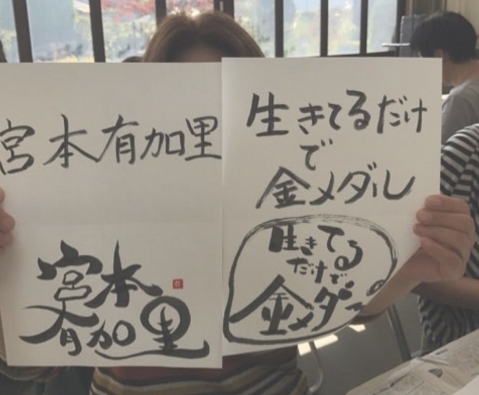 宮本有加里
宮本
有加里
生きてるだけ
で
金メダル
生きてる
だけで
金メダル